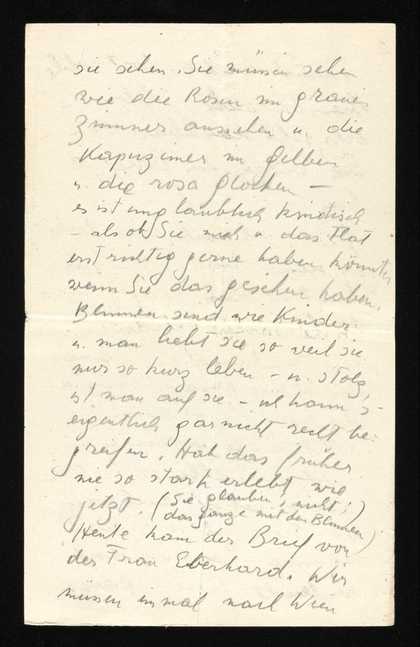 sie sehen. Sie müssen sehen
wie die Rosen im grauen
Zimmer aussehen u. die
Kapuziner im gelben
u. die rosa Glocken —
es ist unglaublich kindisch
– als ob Sie mich u. das Flat
erst richtig gerne haben könnten
wenn Sie das gesehen haben.
Blumen sind wie Kinder
u. man liebt sie so weil sie
nur so kurz leben – u. stolz
ist man auf sie – ich kann's
eigentlich garnicht recht be-
greifen. Hab das früher
nie so stark erlebt wie
jetzt. (Sie glauben, nicht;
das ganze mit den Blumen)
Heute kam der Brief von
der Frau Eberhard. Wir
müssen einmal nach Wien